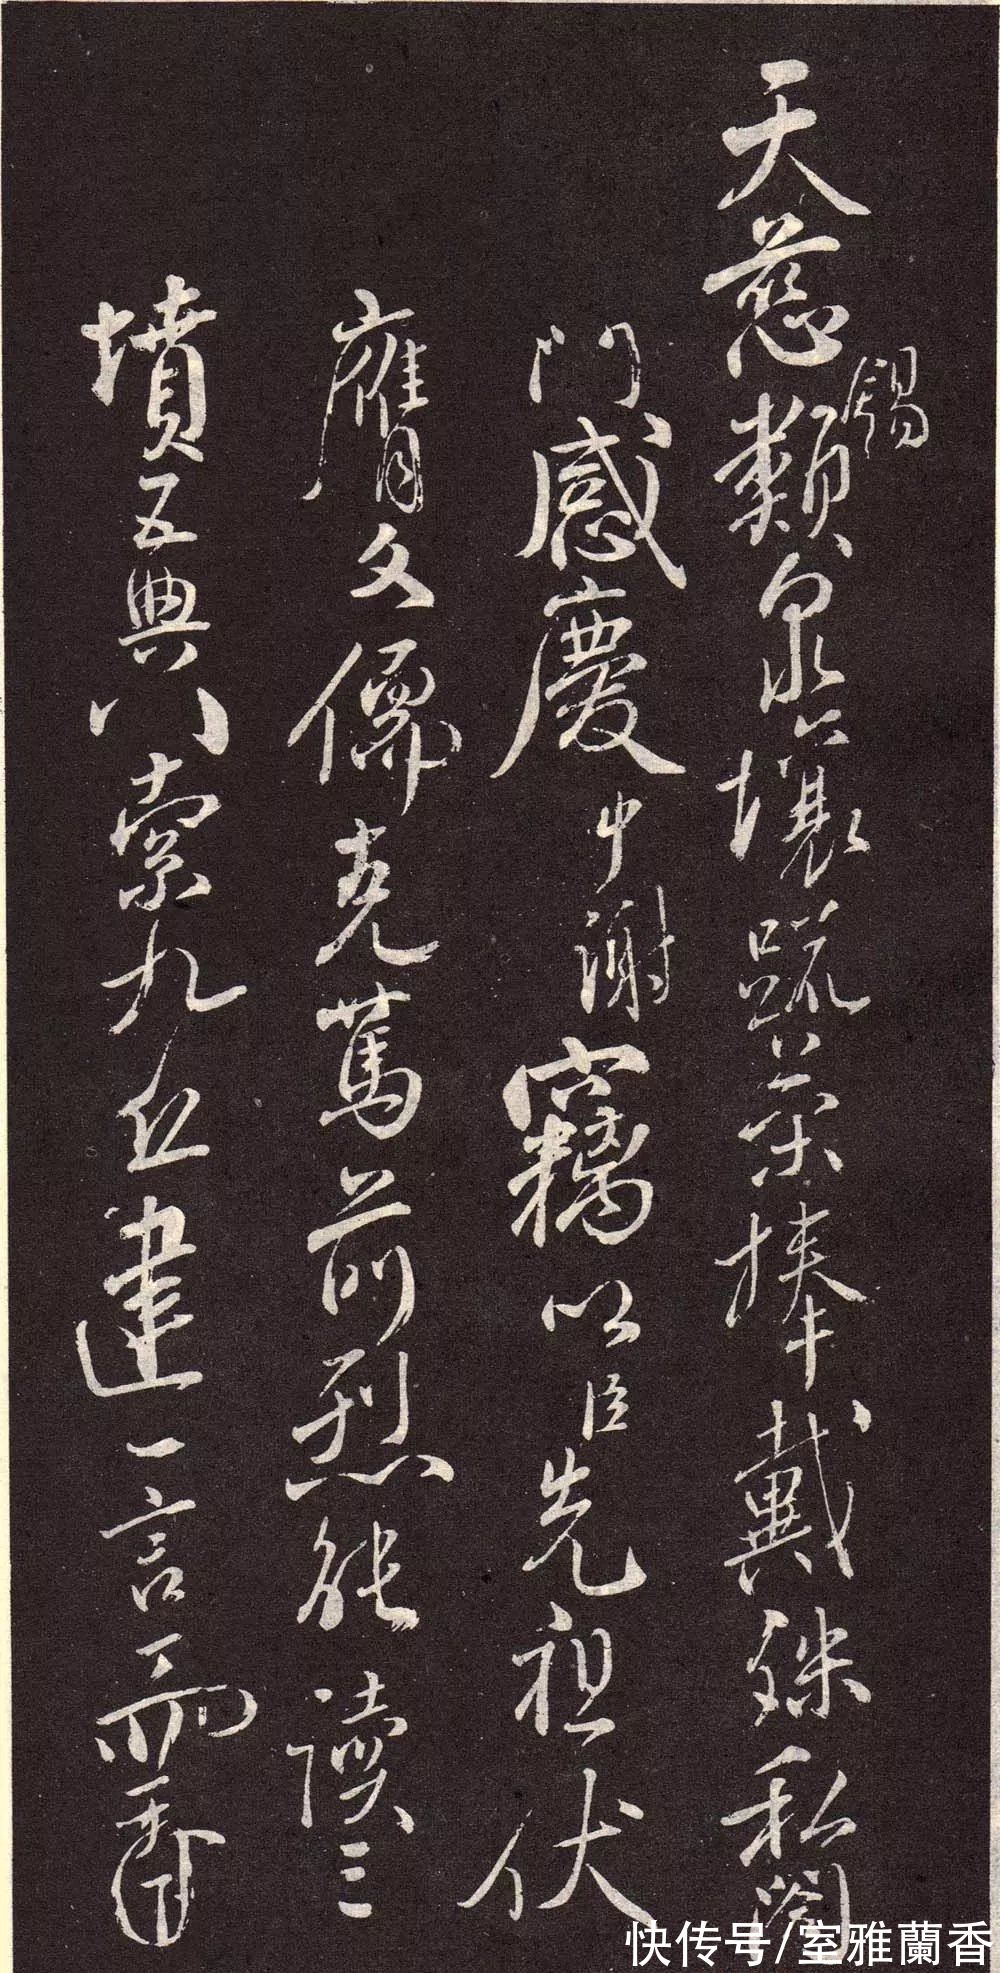 天慈錫類泉壤疏榮捧戴殊私闔
門感慶中謝竊以臣先祖伏
膺文儒克篤前烈能讀三
墳五典八索九丘建一言
快传号/室雅蘭香